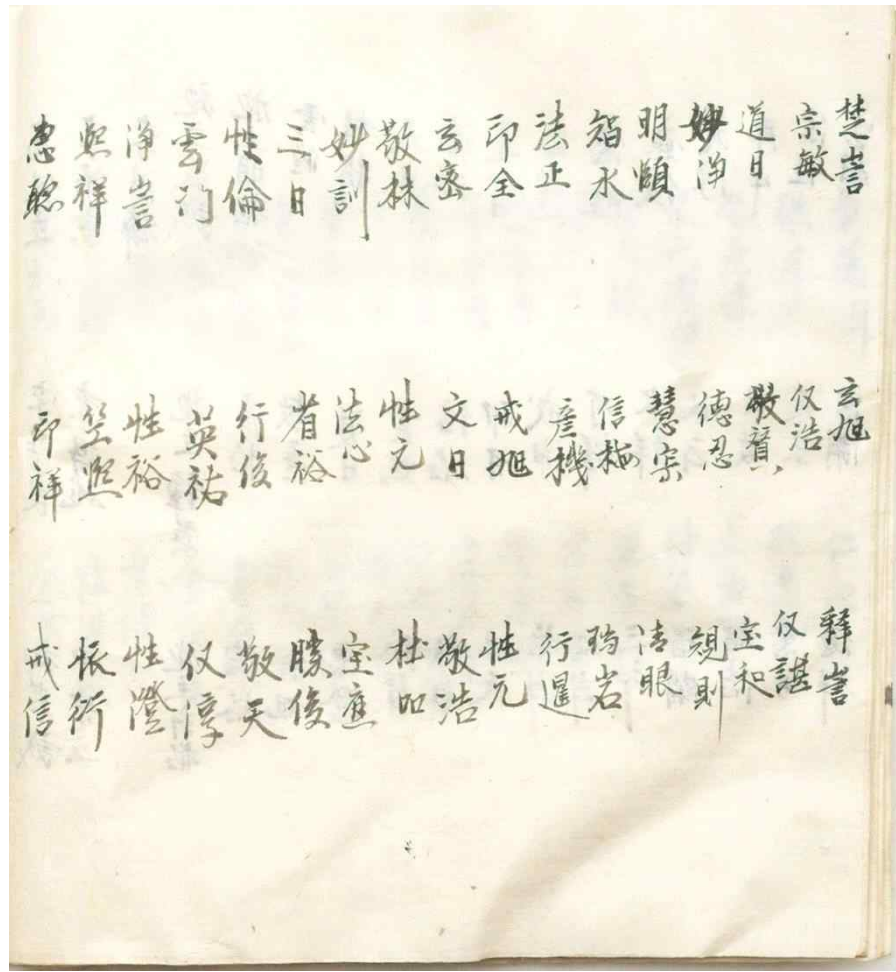 楚訔
宗敏
道日
妙淨
明頤
智水
法正
印全
玄密
敬林
妙訓
三日
性倫
雲行
淨訔
熙祥
惠聰
玄旭
仅浩
敬贇
德忍
慧宗
信梅
彦機
戒旭
文日
性元
法心
省裕
行俊
英祐
性裕
笠熙
印祥
釋訔
仅諶
宝和
規則
清眼
瑞岩
行暹
性元
敬浩
宝應
勝俊
敬天
仅淳
性澄
振衍
戒信